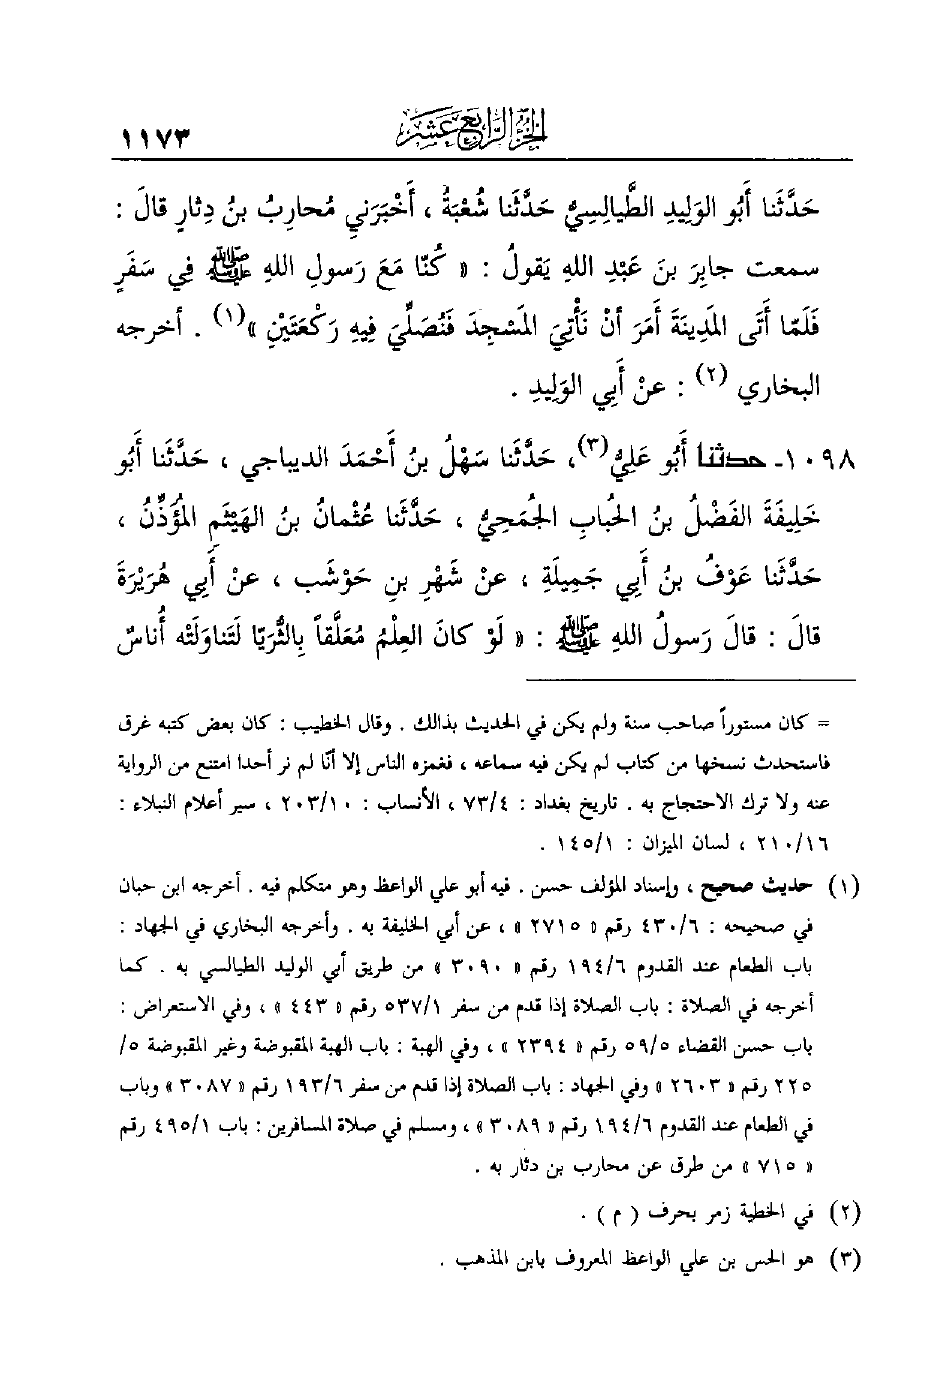 الجزء الرابع عشر ١١٧٣
حَدَّثَنا أَبُو الوَلِيدِ الطَّيالِسِيُّ حَدَّثَنا شُعْبَةُ ، أَخْبَرَنِي مُحارِبُ بنُ دِثارٍ قالَ :
سمعت جابِرَ بنَ عَبْدِ اللهِ يَقولُ : « كُنّا مَعَ رَسولِ اللهِ ﷺ فِي سَفَرٍ
فَلَمّا أَتَى المَدِينَةَ أَمَرَ أنْ نَأْتِيَ المَسْجِدَ فَنُصَلِّيَ فِيهِ رَكْعَتَيْنِ »(١) . أخرجه
البخاري (٢) : عنْ أَبِي الوَلِيدِ .
١٠٩٨- حدثنا أَبُو عَلِيٍّ(٣)، حَدَّثَنا سَهْلُ بنُ أَحْمَدَ الديباجي ، حَدَّثَنا أَبُو
خَلِيفَةَ الفَضْلُ بنُ الحُبابِ الجُمَحِيُّ ، حَدَّثَنا عُثْمانُ بنُ الهَيْثَمِ المُؤَذِّنُ ،
حَدَّثَنا عَوْفُ بنُ أَبِي جَمِيلَةِ ، عنْ شَهْرِ بنِ حَوْشَبِ ، عنْ أَبِي هُرَيْرَةَ
قالَ : قالَ رَسولُ اللهِ ﷺ : « لَوْ كانَ العِلْمُ مُعَلَّقاً بِالثُّرَيّا لَتَناوَلَتْه أُناسٌ
= كان مستوراً صاحب سنة ولم يكن في الحديث بذالك . وقال الخطيب : كان بعض كتبه غرق
فاستحدث نسخها من كتاب لم يكن فيه سماعه ، فغمزه الناس إلا أنّا لم نر أحدا امتنع من الرواية
عنه ولا ترك الاحتجاج به . تاريخ بغداد : ٧٣/٤ ، الأنساب : ٢٠٣/١٠ ، سير أعلام النبلاء :
٢١٠/١٦ ، لسان الميزان : ١٤٥/١ .
(١) حديث صحيح ، وإسناد المؤلف حسن . فيه أبو علي الواعظ وهو متكلم فيه . أخرجه ابن حبان
في صحيحه : ٤٣٠/٦ رقم « ٢٧١٥ » ، عن أبي الخليفة به . وأخرجه البخاري في الجهاد :
باب الطعام عند القدوم ١٩٤/٦ رقم « ٣٠٩٠ » من طريق أبي الوليد الطيالسي به . كما
أخرجه في الصلاة : باب الصلاة إذا قدم من سفر ٥٣٧/١ رقم « ٤٤٣ » ، وفي الاستعراض :
باب حسن القضاء ٥٩/٥ رقم « ٢٣٩٤ » ، وفي الهبة : باب الهبة المقبوضة وغير المقبوضة ٥/
٢٢٥ رقم « ٢٦٠٣ » وفي الجهاد : باب الصلاة إذا قدم من سفر ١٩٣/٦ رقم « ٣٠٨٧ » وباب
في الطعام عند القدوم ١٩٤/٦ رقم « ٣٠٨٩ » ، ومسلم في صلاة المسافرين : باب ٤٩٥/١ رقم
« ٧١٥ » من طرق عن محارب بن دثار به .
(٢) في الخطية زمر بحرف ( م ) .
(٣) هو الحس بن علي الواعظ المعروف بابن المذهب .